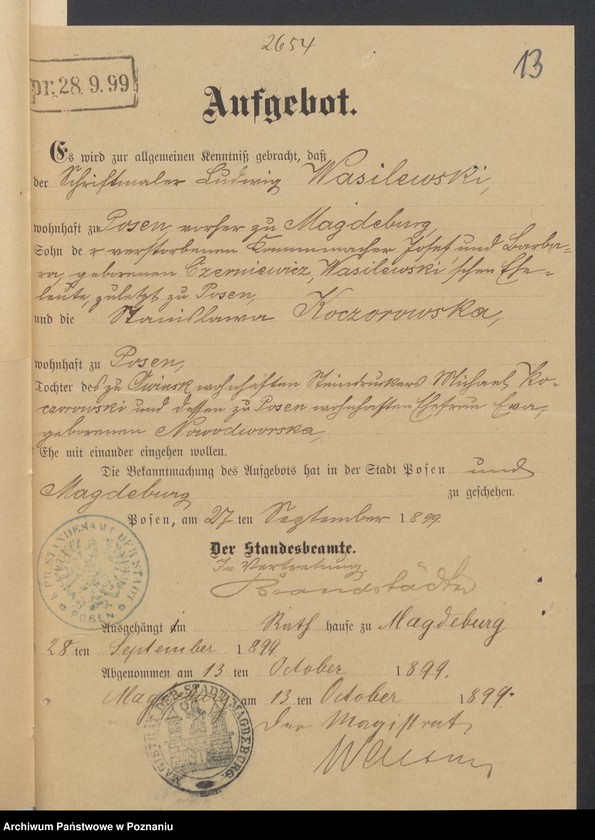 2654
13
pr. 28. 9. 99
Aufgebot.
Es wird zur allgemeinen Kenntniß gebracht, daß
der Schriftmaler Ludwig Wasilewski,
wohnhaft zu Posen, vorher zu Magdeburg,
Sohn de r verstorbenen Kammmacher Josef und Barba-
ra, geborenen Czerniewicz, Wasilewski'schen Ehe-
leute, zuletzt zu Posen,
und die Stanislawa Koczorowska,
wohnhaft zu Posen,
Tochter des zu Owinsk wohnhaften Steindruckers Michael Ko-
czorowski und dessen zu Posen wohnhaften Ehefrau Eva,
geborenen Nowodworska,
Ehe mit einander eingehen wollen.
Die Bekanntmachung des Aufgebots hat in der Stadt Posen und
Magdeburg zu geschehen.
Posen, am 27 ten September 1899.
Der Standesbeamte.
In Vertretung
Brandstädter
K. PR. STANDESAMT DER STADT POSEN
Ausgehängt im Rath hause zu Magdeburg
28 ten September 1899.
Abgenommen am 13 ten October 1899.
Magdeburg am 13 ten October 1899.
Der Magistrat,
MAGISTRAT DER STADT MAGDEBURG.
Archiwum Państwowe w Poznaniu